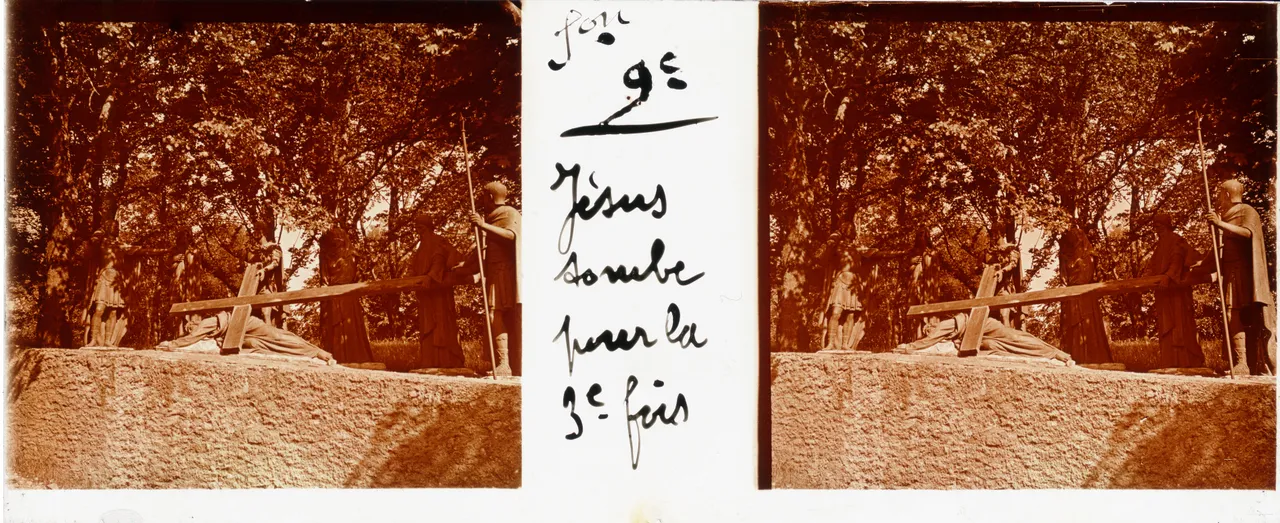 9e
Jésus
sombe
pour la
3e fois